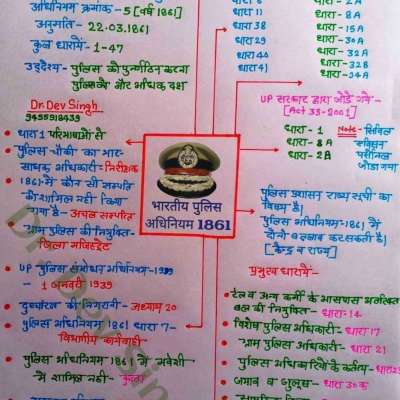 अधिनियम क्रमांक - 5 [वर्ष 1861]
अनुमति - 22.03.1861
कुल धारायें - 1-47
उद्देश्य - पुलिस को पुनर्गठित करना
पुलिस को और अधिक दक्ष
Dr. Dev Singh
9455918439
धारा 1 परिभाषाओं से
पुलिस चौकी का भार-
साधक अधिकारी - निरीक्षक
1861 में कौन सी सम्पत्ति
को शामिल नहीं किया
गया है - अचल सम्पत्ति
ग्राम पुलिस की नियुक्ति -
जिला मजिस्ट्रेट
UP पुलिस संशोधन अधिनियम - 1939
- 1 जनवरी 1939
दुर्व्यापार की निगरानी - अध्याय 20
पुलिस अधिनियम 1861 धारा 7 -
विभागीय कार्यवाही
पुलिस अधिनियम 1861 में मवेशी
में शामिल नहीं - कुत्ता
भारतीय पुलिस
अधिनियम 1861
धारा 11
धारा 38
धारा 29
धारा 40
धारा 41
धारा - 2A
धारा - 8A
धारा - 15A
धारा - 30A
धारा - 32A
धारा - 32B
धारा - 34A
UP सरकार द्वारा जोड़े गये -
[Act 33-2001]
धारा - 1
धारा - 8A
धारा - 2A
Note - सिविल
जोड़ा गया
पुलिस प्रशासन राज्य सूची का
विषय है।
पुलिस अधिनियम - 1861 में
दोनों बदलाव कर सकती है।
[केन्द्र व राज्य]
प्रमुख धारायें -
रेलवे अन्य कर्मों के आसपास अतिरिक्त
बल की नियुक्ति - धारा - 14
विशेष पुलिस अधिकारी - धारा 17
ग्राम पुलिस अधिकारी - धारा 21
पुलिस अधिकारियों के कर्तव्य - धारा 23
जमाव व जुलूस - धारा 30 क